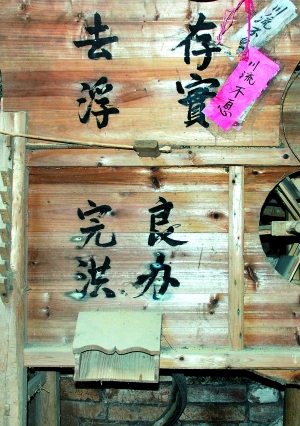 存實
去浮
良办
完洪
川流不息
川流不